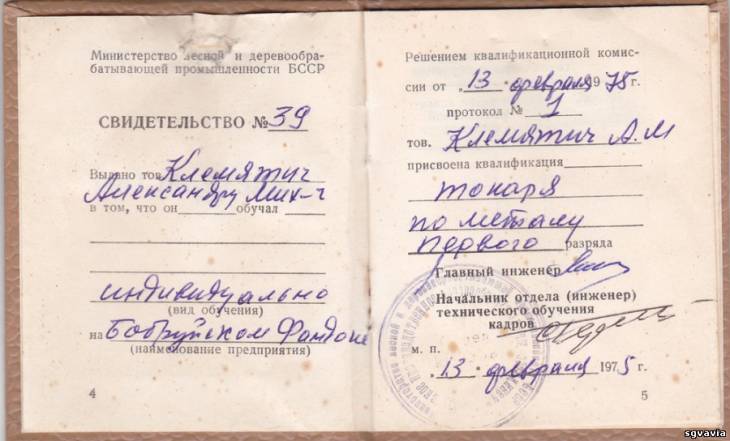 Министерство лесной и деревообра-
батывающей промышленности БССР
СВИДЕТЕЛЬСТВО № 39
Выдано тов. Клемятич
Александру Мих-ч
в том, что он обучал
индивидуально
(вид обучения)
на Бобруйском Фандоке
(наименование предприятия)
4
Решением квалификационной комис-
сии от „13“ февраля 1975 г.
протокол № 1
тов. Клемятич А.М
присвоена квалификация
токаря
по металу
первого разряда
Главный инженер
Начальник отдела (инженер)
технического обучения
кадров
м. п.
„13“ февраля 1975 г.
5
sgvavia